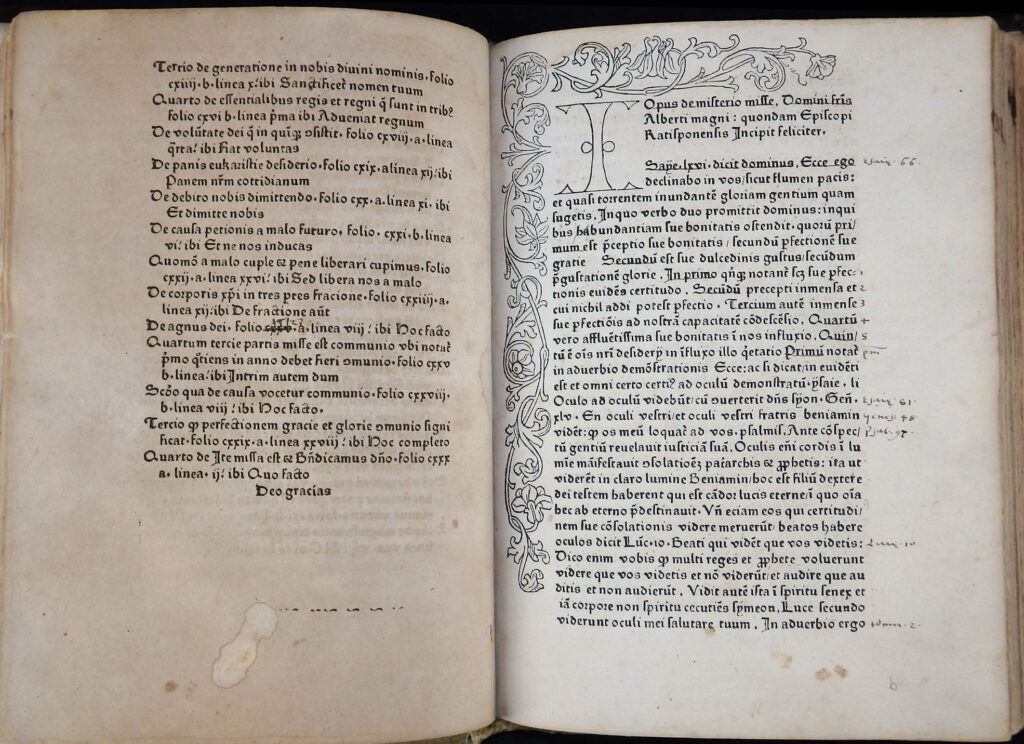 Tercio de generatione in nobis diuini nominis. folio
cxiiij. b. linea x. ibi Sanctificet̉ nomen tuum
Quarto de essentialibus regis et regni q̄ sunt in tribꝰ
folio cxvi b. linea pͥma ibi Adueniat regnum
De volūtate dei q̄ in quiƀ ↄsistit. folio cxviij. a. linea
q̄rta. ibi Fiat voluntas
De panis eukaristie desiderio. folio cxix. a. linea xij. ibi
Panem nr̄m cottidianum
De debito nobis dimittendo. folio cxx. a. linea xi. ibi
Et dimitte nobis
De causa petionis a malo futuro. folio. cxxi. b. linea
vi. ibi Et ne nos inducas
Quomō a malo cuple ⁊ pene liberari cupimus. folio
cxxij. a. linea xxvi. ibi Sed libera nos a malo
De corporis xp̄i in tres ꝑtes fracione. folio cxxiij. a.
linea xij. ibi De fractione aūt
De agnus dei. folio a. linea viij. ibi Hoc facto
Quartum tercie partis misse est communio vbi notat̉
pͥmo q̄tiens in anno debet fieri ↄmunio. folio cxxv
b. linea. ibi Intrim autem dum
Scdo qua de causa vocetur communio. folio cxxviij.
b. linea viij. ibi Hoc facto.
Tercio ꝙ perfectionem gracie et glorie ↄmunio signi
ficat. folio cxxix. a. linea xxviij. ibi Hoc completo
Quarto de Ite missa est ⁊ Bn̄dicamus dn̄o. folio cxxx
a. linea. ij. ibi Quo facto
Deo gracias
TOpus de misterio misse. Domini fr̄is
Alberti magni: quondam Episcopi
Ratisponensis Incipit feliciter.
Saye. lxvi. dicit dominus. Ecce ego
esaie 66.
declinabo in vos/sicut flumen pacis:
et quasi torrentem inundantē gloriam gentium quam
sugetis. In quo verbo duo promittit dominus: in qui
bus habundantiam sue bonitatis ostendit. quorū pri/
mum est ꝑceptio sue bonitatis/secundū ꝑfectionē sue
gratie Secundū est sue dulcedinis gustus/secūdum
p̄gustationē glorie. In primo qn̄ꝗ notant̉ scꝫ sue ꝑfec
tionis euidēs certitudo. Secūdū precepti inmensa et
cui nichil addi potest ꝑfectio. Tercium autē inmense
sue ꝑfectiōis ad nostrā capacitatē cōdescēsio. Quartū
vero affluētissima sue bonitatis ī nos influxio. Quin/
tū ē oīs nr̄i desiderꝫ in īfluxo illo q̄etatio Primū notat̉
in aduerbio demōstrationis Ecce: ac si dicat/in euidēti
est et omni certo certiꝰ ad oculū demonstratū. ysaie. li
Oculo ad oculū videbūt/cū ↄuerterit dn̄s syon. Gen̄.
esaie 61.
xlv. En oculi vestri/et oculi vestri fratris beniamin
genes. 48
vidēt: ꝙ os meū loquat̉ ad vos. psalmis. Ante cōspec/
psal. 97.
tū gentiū reuelauit iusticiā suā. Oculis en̄i cordis ī lu
mīe māifestauit ↄsolatioēꝫ pat̉archis ⁊ ꝓphetis: ita ut
viderēt in claro lumine Beniamin/hoc est filiū dextere
dei testem haberent qui est cādor lucis eterne/ī quo oīa
hec ab eterno p̄destinauit. Vn̄ eciam eos qui certitudi/
nem sue cōsolationis videre meruerūt/beatos habere
oculos dicit Lūc. io. Beati qui vidēt que vos videtis:
Luc. 10
Dico enim vobis ꝙ multi reges et ꝓphete voluerunt
videre que vos videtis et nō viderūt/et audire que au
ditis et non audierūt. Vidit autē ista ī spiritu senex et
iā corpore non spiritu cecutiēs symeon. Luce secundo
viderunt oculi mei salutare tuum. In aduerbio ergo
b